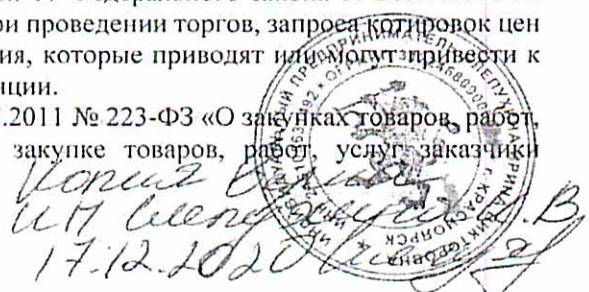 ри проведении торгов, запроса котировок цен
ия, которые приводят или могут привести к
нции.
.2011 № 223-ФЗ «О закупках товаров, работ,
закупке товаров, работ, услуг заказчики
Копия верна
ИП
17.12.2020
ИНДИВИДУАЛЬНЫЙ ПРЕДПРИНИМАТЕЛЬ
ВИКТОРОВНА
г. КРАСНОЯРСК